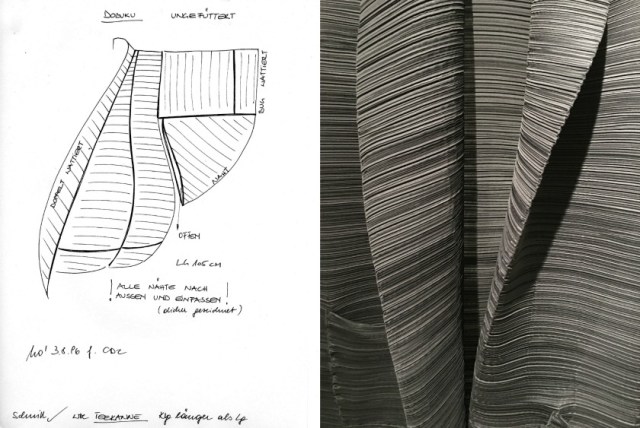 DOBUKU UNGEFÜTTERT
DOPPELT WATTIERT
BUG WATTIERT
NAHT
OFEN
LH 105 CM
! ALLE NÄHTE NACH
AUSSEN UND EINFASSEN !
(dicker gezeichnet)
3.8.96 f.
Schnitt ✓ wie TEEKANNE länger als